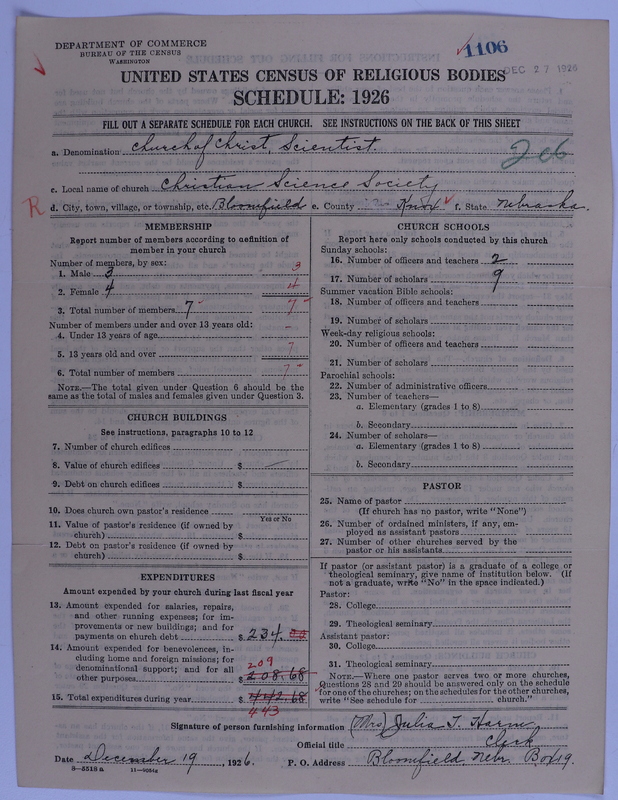 DEPARTMENT OF COMMERCE
BUREAU OF THE CENSUS
WASHINGTON
1106
DEC 27 1926
UNITED STATES CENSUS OF RELIGIOUS BODIES
SCHEDULE: 1926
FILL OUT A SEPARATE SCHEDULE FOR EACH CHURCH. SEE INSTRUCTIONS ON THE BACK OF THIS SHEET
a. Denomination Church of Christ, Scientist.
206
c. Local name of church Christian Science Society
R d. City, town, village, or township, etc. Bloomfield e. County Knox f. State Nebraska.
MEMBERSHIP
Report number of members according to definition of
member in your church
Number of members, by sex:
1. Male 3 3
2. Female 4 4
3. Total number of members 7 7
Number of members under and over 13 years old:
4. Under 13 years of age
5. 13 years old and over 7
6. Total number of members 7
NOTE.—The total given under Question 6 should be the
same as the total of males and females given under Question 3.
CHURCH BUILDINGS
See instructions, paragraphs 10 to 12
7. Number of church edifices
8. Value of church edifices $
9. Debt on church edifices $
10. Does church own pastor's residence
Yes or No
11. Value of pastor's residence (if owned by
church) $
12. Debt on pastor's residence (if owned by
church) $
EXPENDITURES
Amount expended by your church during last fiscal year
13. Amount expended for salaries, repairs,
and other running expenses; for im-
provements or new buildings; and for
payments on church debt $ 234.00
14. Amount expended for benevolences, in-
cluding home and foreign missions; for
denominational support; and for all 209
other purposes $ 208.68
15. Total expenditures during year $ 442.68
443
CHURCH SCHOOLS
Report here only schools conducted by this church
Sunday schools:
16. Number of officers and teachers 2
17. Number of scholars 9
Summer vacation Bible schools:
18. Number of officers and teachers
19. Number of scholars
Week-day religious schools:
20. Number of officers and teachers
21. Number of scholars
Parochial schools:
22. Number of administrative officers
23. Number of teachers—
a. Elementary (grades 1 to 8)
b. Secondary
24. Number of scholars—
a. Elementary (grades 1 to 8)
b. Secondary
PASTOR
25. Name of pastor
(If church has no pastor, write "None")
26. Number of ordained ministers, if any, em-
ployed as assistant pastors
27. Number of other churches served by the
pastor or his assistants
If pastor (or assistant pastor) is a graduate of a college or
theological seminary, give name of institution below. (If
not a graduate, write "No" in the space indicated.)
Pastor:
28. College
29. Theological seminary
Assistant pastor:
30. College
31. Theological seminary
NOTE.—Where one pastor serves two or more churches,
Questions 28 and 29 should be answered only on the schedule
for one of the churches; on the schedules for the other churches,
write "See schedule for church."
Signature of person furnishing information (Mrs) Julia T. Harm
Official title Clerk
Date December 19, 1926. P. O. Address Bloomfield, Nebr. Box 19.
8—5518 a 11—9084a